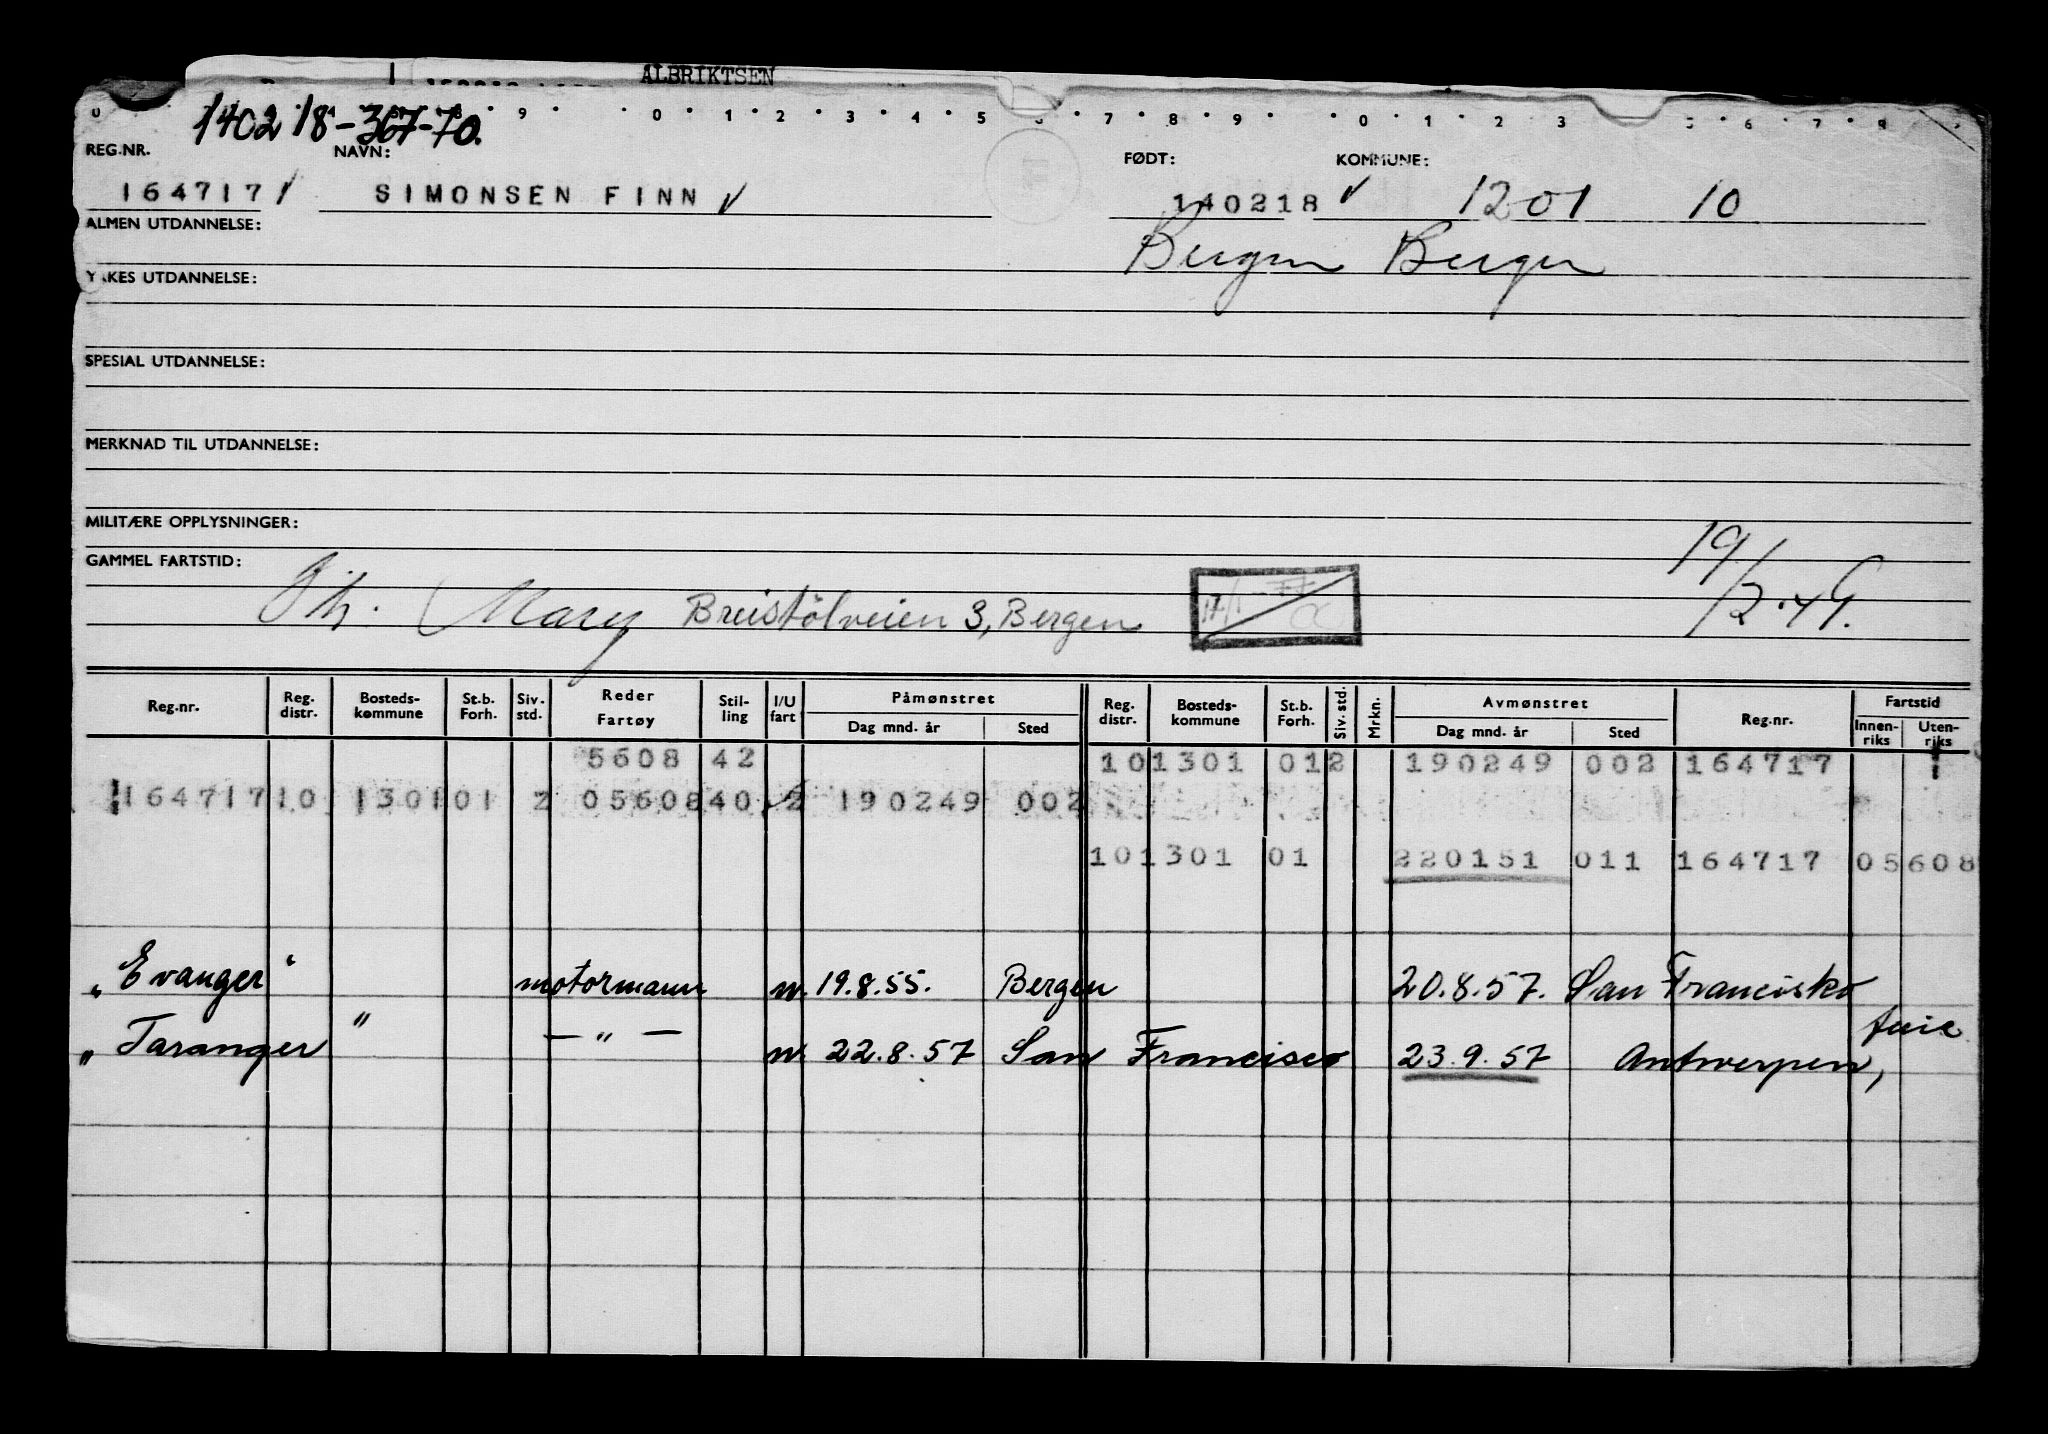 ALBRIKTSEN
140218-367-70.
REG.NR. NAVN: FØDT: KOMMUNE:
164717 SIMONSEN FINN 140218 1201 10
ALMEN UTDANNELSE: Bergen Bergen
YRKES UTDANNELSE:
SPESIAL UTDANNELSE:
MERKNAD TIL UTDANNELSE:
MILITÆRE OPPLYSNINGER:
GAMMEL FARTSTID: 19/2.49.
Mary Breistölveien 3, Bergen
Reg.nr. Reg. distr. Bosteds-kommune St.b. Forh. Siv. std. Reder Fartøy Stil-ling I/U fart Påmønstret Dag mnd. år Sted Reg. distr. Bosteds-kommune St.b. Forh. Siv. std. Mrkn. Avmønstret Dag mnd. år Sted Reg.nr. Fartstid Innen-riks Uten-riks
5608 42 101301 012 190249 002 164717
164717 10 1301 01 2 05608 40 2 190249 002
101301 01 220151 011 164717 05608
"Evanger" motormann u. 19.8.55. Bergen 20.8.57. San Francisko
"Taranger" — " — u. 22.8.57 San Francisco 23.9.57 Antwerpen,